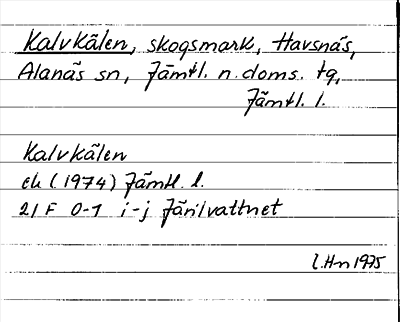 Kalvkälen, skogsmark, Havsnäs,
Alanäs sn, Jämtl. n. doms. tg,
Jämtl. l.
Kalvkälen
ek (1974) Jämtl. l.
21 F 0-1 i-j Järilvattnet
L.Hn 1975